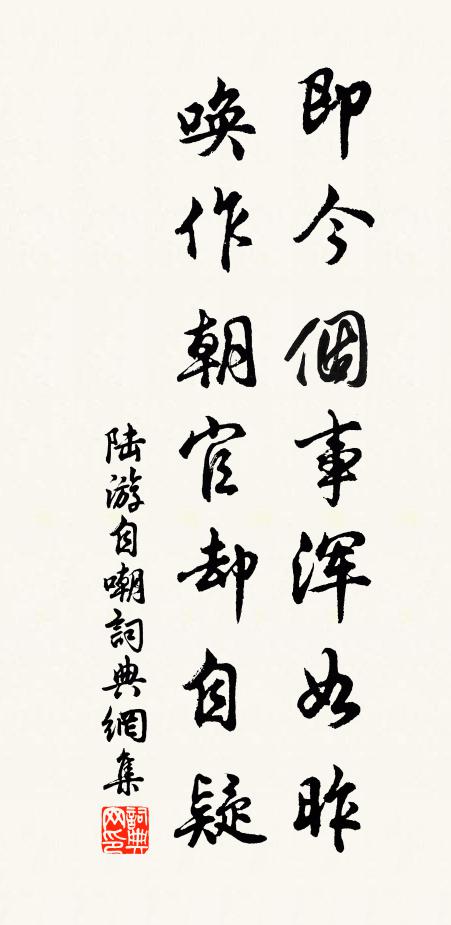 即今個事浑如昨
唤作朝官却自疑
陆游自嘲詞典網集
詞典网印